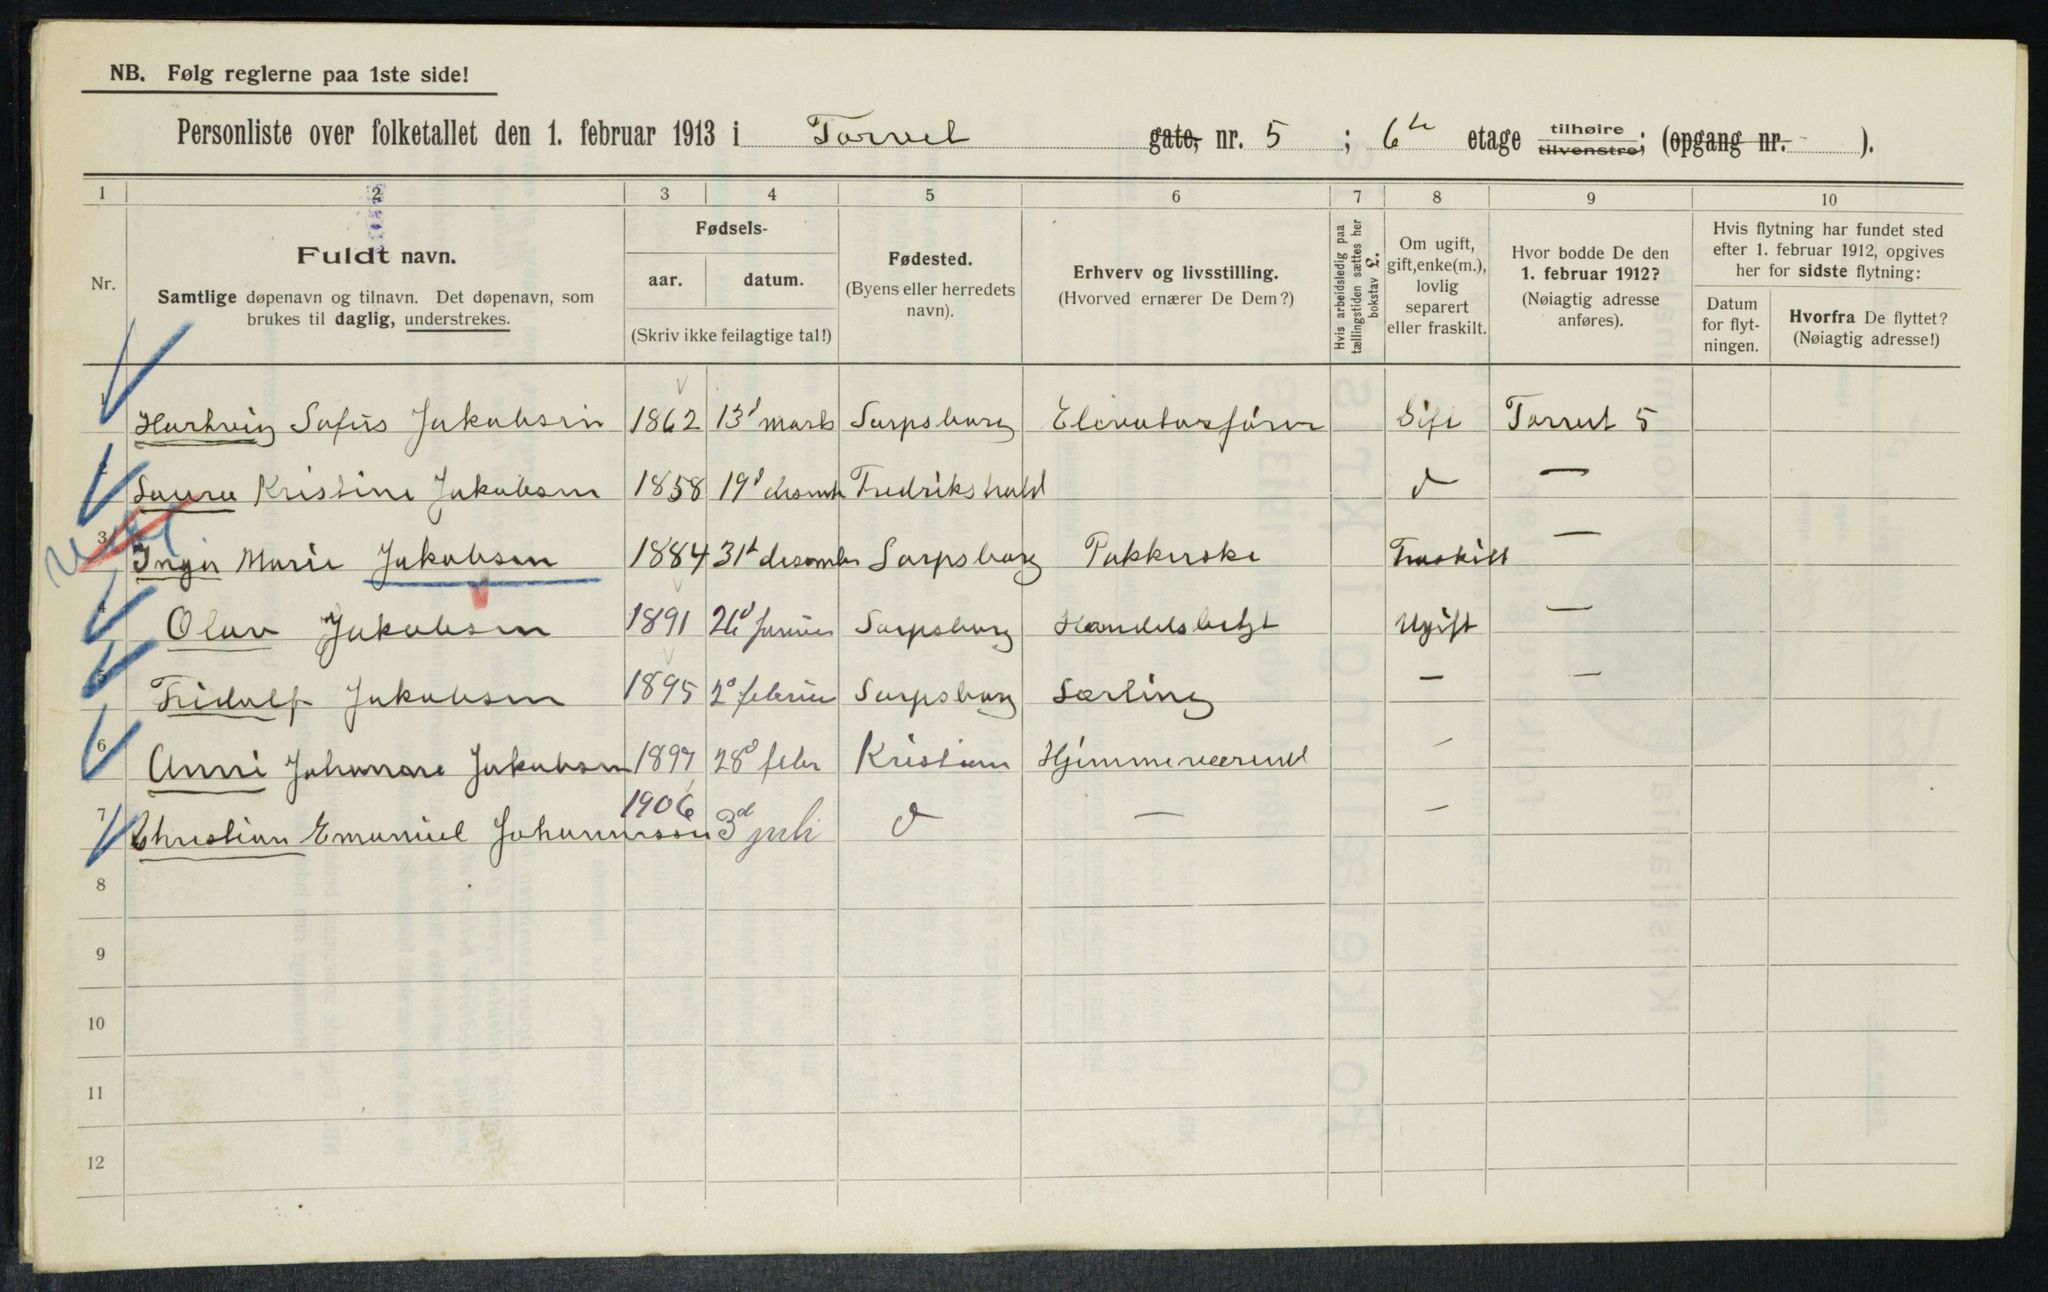 NB. Følg reglerne paa 1ste side!
Personliste over folketallet den 1. februar 1913 i Torvet gate, nr. 5 ; 6te etage tilhøire tilvenstre; (opgang nr. - ).
1 2 3 4 5 6 7 8 9 10
Nr.
Fuldt navn.
Samtlige døpenavn og tilnavn. Det døpenavn, som
brukes til daglig, understrekes.
Fødsels-
aar. datum.
(Skriv ikke feilagtige tal!)
Fødested.
(Byens eller herredets
navn).
Erhverv og livsstilling.
(Hvorved ernærer De Dem?)
Hvis arbeidsledig paa
tællingstiden sættes her
bokstav L.
Om ugift,
gift, enke(m.),
lovlig
separert
eller fraskilt.
Hvor bodde De den
1. februar 1912?
(Nøiagtig adresse
anføres).
Hvis flytning har fundet sted
efter 1. februar 1912, opgives
her for sidste flytning:
Datum
for flyt-
ningen.
Hvorfra De flyttet?
(Nøiagtig adresse!)
1 Hartvig Sofus Jakobsen 1862 13d marts Sarpsborg Elevatorfører Gift Torvet 5
2 Laura Kristine Jakobsen 1858 19d desemb Fredrikshald d —
3 Inga Marie Jakobsen 1884 31d desember Sarpsborg Pakkerske Fraskilt —
4 Olav Jakobsen 1891 26d Sarpsborg Handelsbetjt Ugift —
5 Fridolf Jakobsen 1895 2d Sarpsborg Lærling — —
6 Anni Johanne Jakobsen 1897 28d febr Kristian Hjemmeværend —
7 Christian Emanuel Johannesen 1906 3d juli d — —
8
9
10
11
12